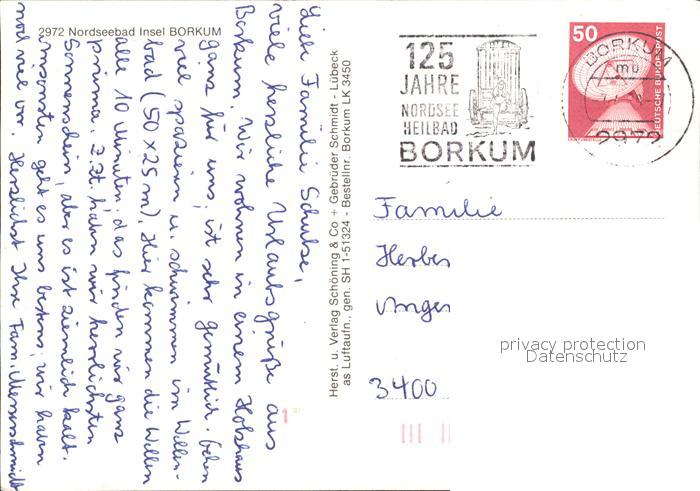 2972 Nordseebad Insel BORKUM
Liebe Familie Schulze,
viele herzliche Urlaubsgrüße aus
Borkum. Wir wohnen in einem Holzhaus
ganz für uns, ist sehr gemütlich. Gehen
viel spazieren u. schwimmen im Wellen-
bad (50 x 25 m). Hier kommen die Wellen
alle 10 Minuten, das finden wir ganz
prima. Z. Zt. haben wir herrlichsten
Sonnenschein, aber es ist ziemlich kalt.
Ansonsten geht es uns bestens, wir haben
noch viel vor. Herzlichst Ihre Fam.
Herst. u. Verlag Schöning & Co + Gebrüder Schmidt - Lübeck
as Luftaufn., gen. SH 1-51324 - Bestellnr. Borkum LK 3450
125
JAHRE
NORDSEE
HEILBAD
BORKUM
50
DEUTSCHE BUNDESPOST
BORKUM
2972
Familie
Herbe
Anger
3400
privacy protection
Datenschutz